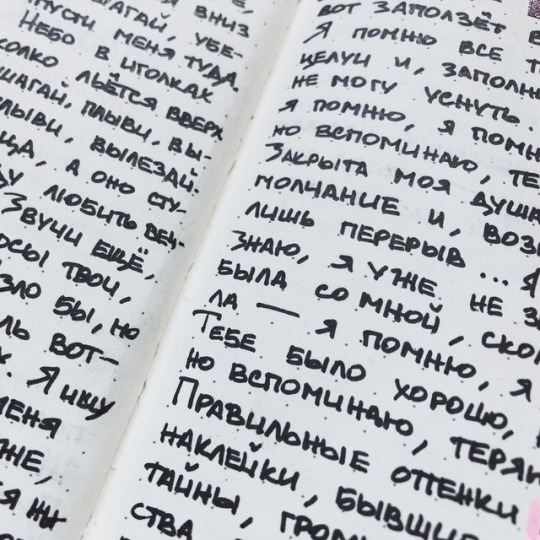 ВНИЗ
ШАГАЙ, УБЕ-
ПУСТИ МЕНЯ ТУДА.
НЕБО В ИГОЛКАХ
ЛЬЁТСЯ ВВЕРХ
ШАГАЙ, ПЛЫВИ, ВЫ-
ВЫЛЕЗАЙ.
А ОНО СТУ-
ЛЮБИТЬ ВЕЧ-
ЗВУЧИ ЕЩЁ,
ТВОИ,
БЫ, НО
ВОТ-
Я ИЩУ
МЕНЯ
ВОТ ЗАПОЛЗЁТ В
Я ПОМНЮ ВСЕ
ЦЕЛУИ И, ЗАПОЛН
НЕ МОГУ УСНУТЬ.
Я ПОМНЮ, Я ПОМН
НО ВСПОМИНАЮ, ТЕ
ЗАКРЫТА МОЯ ДУША
МОЛЧАНИЕ И, ВОЗ
ЛИШЬ ПЕРЕРЫВ... Я
ЗНАЮ, Я УЖЕ НЕ З
БЫЛА СО МНОЙ, СКО
ЛА — Я ПОМНЮ, Я
ТЕБЕ БЫЛО ХОРОШО,
НО ВСПОМИНАЮ, ТЕРЯ
ПРАВИЛЬНЫЕ ОТТЕНКИ
НАКЛЕЙКИ, БЫВШИ
ТАЙНЫ, ГРОМ
СТВА